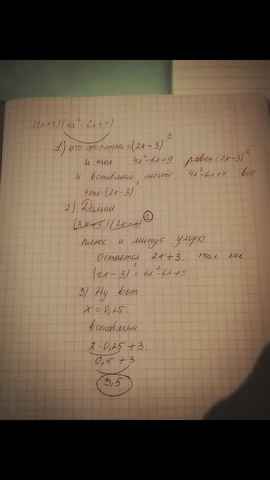 (2x+3)(4x²-6x+9)
1) это формула = (2x-3)²
и так 4x²-6x+9 равен (2x-3)²
и вставляем место 4x²-6x+9 вот
это (2x-3)²
2) Дальше
(2x+3)(2x-3)²
плюс и минус уходят
Остается 2x+3. так как
(2x-3)² = 4x²-6x+9
3) Ну вот
x = 0,25.
вставляем
2·0,25 + 3.
0,5 + 3
3,5